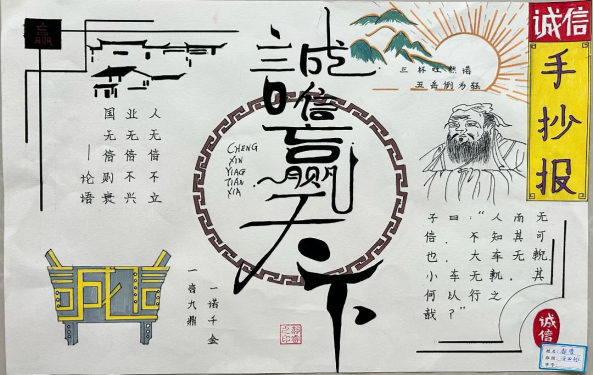 诚信
手抄报
三杯吐然诺
五岳倒为轻
誠信赢天下
CHENG
XIN
YIAG
TIAN
XIA
人无信不立
业无信不兴
国无信则衰
—论语
子曰:"人而无
信,不知其可
也,大车无輗,
小车无軏,其
何以行之
哉?"
誠信
一诺千金
一言九鼎
诚信
姓名:
班级:
学号: